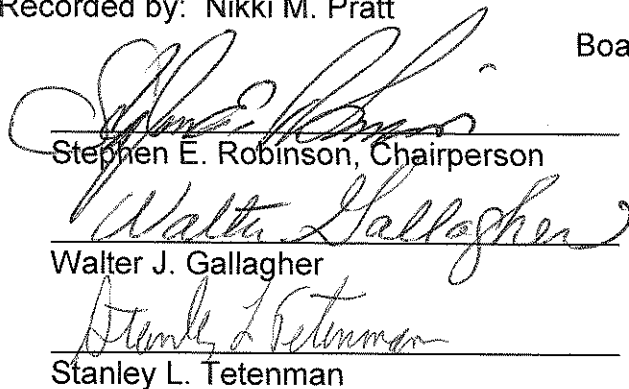 Recorded by: Nikki M. Pratt
Boa
Stephen E. Robinson
Stephen E. Robinson, Chairperson
Walter Gallagher
Walter J. Gallagher
Stanley L Tetenman
Stanley L. Tetenman